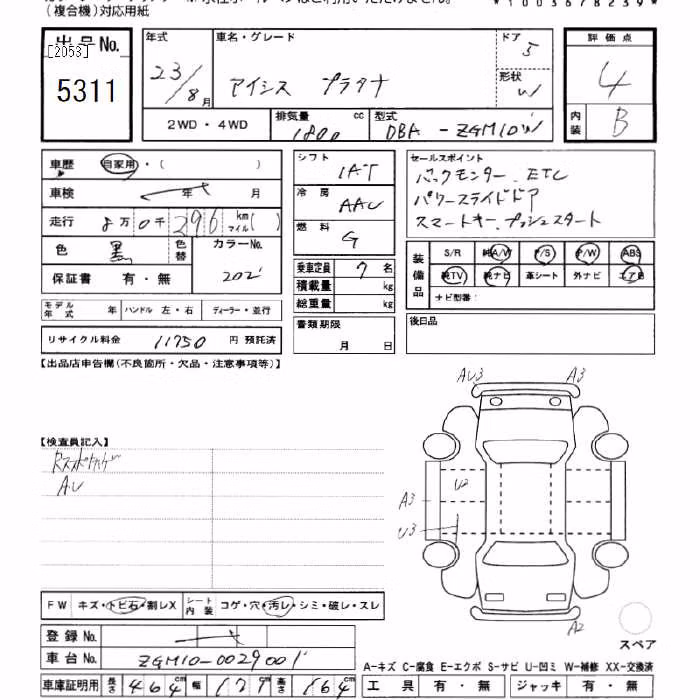 （複合機）対応用紙
*1003678239*
出品No.
[2053]
5311
年式
23/8月
車名・グレード
アイシス プラタナ
ドア
5
形状
W
評価点
4
内装
B
2WD・4WD
排気量 cc
1800
型式
DBA - ZGM10W
車歴
自家用・( )
車検 年 月
走行 8万0千296 km マイル( )
色 黒
色替
カラーNo.
202
保証書 有・無
モデル年式 年
ハンドル 左・右
ディーラー・並行
リサイクル料金 11750 円 預託済
シフト
IAT
冷房
AAC
燃料
G
乗車定員 7 名
積載量 kg
総重量 kg
書類期限
月 日
セールスポイント
バックモンター. ETC
パワースライドドア
スマートキー. プッシュスタート
装備品
S/R 純A/W P/S P/W ABS
純TV 純ナビ 革シート 外ナビ エアB
ナビ型番：
後日品
【出品店申告欄(不良箇所・欠品・注意事項等)】
【検査員記入】
AU
AU3
A3
U2
A3
U3
A2
スペア
FW キズ・トビ石・割レX
シート内装 コゲ・穴・汚レ・シミ・破レ・スレ
登録No.
車台No. ZGM10-0029001
車庫証明用 長さ 464cm 幅 171cm 高さ 164cm
A-キズ C-腐食 E-エクボ S-サビ U-凹ミ W-補修 XX-交換済
工具 有・無 ジャッキ 有・無